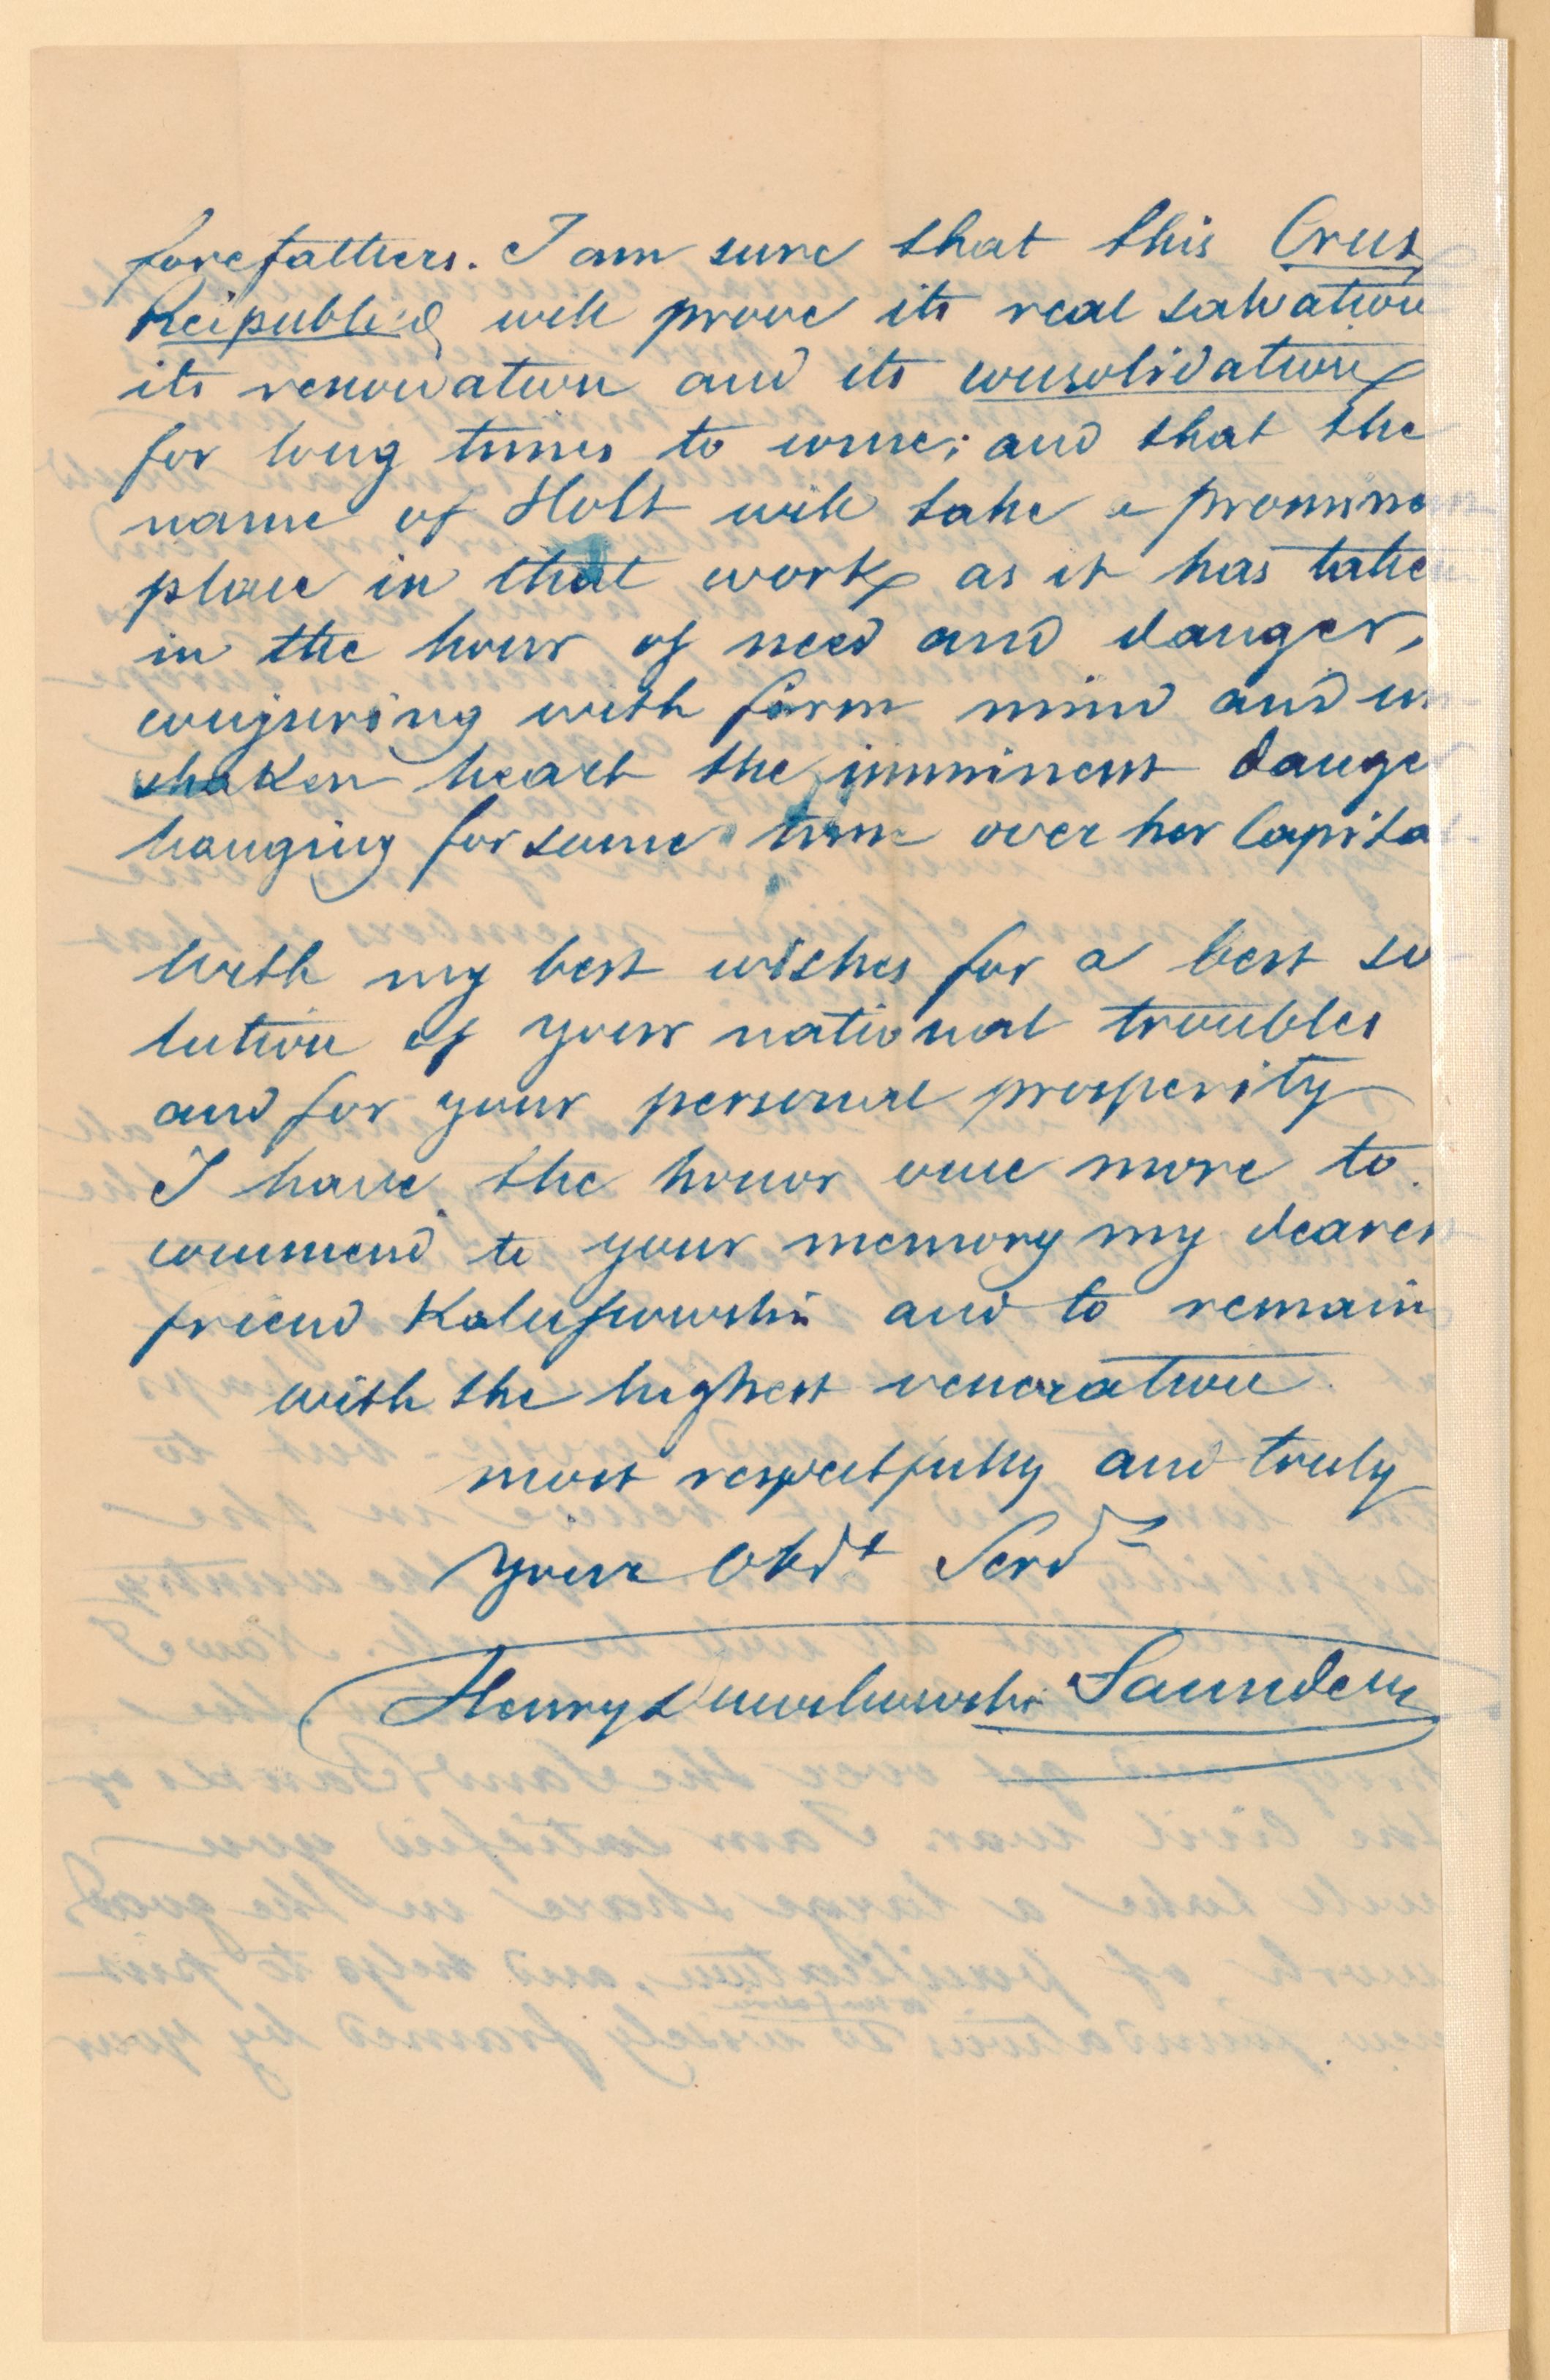 forefathers. I am sure that this Crux
Reipublicæ will prove its real salvation
its renowation and its consolidation
for long times to come; and that the
name of Holt will take a prominent
place in that work as it has taken
in the hour of need and danger,
conjuring with firm mind and un-
shaken heart the imminent danger
hanging for some time over her Capital.
With my best wishes for a best so-
lution of your national troubles
and for your personal prosperity
I have the honor once more to
commend to your memory my dearest
friend Kalussowski and to remain
with the highest veneration
most respectfully and truly
your Obdt Servt
Henry Saunders